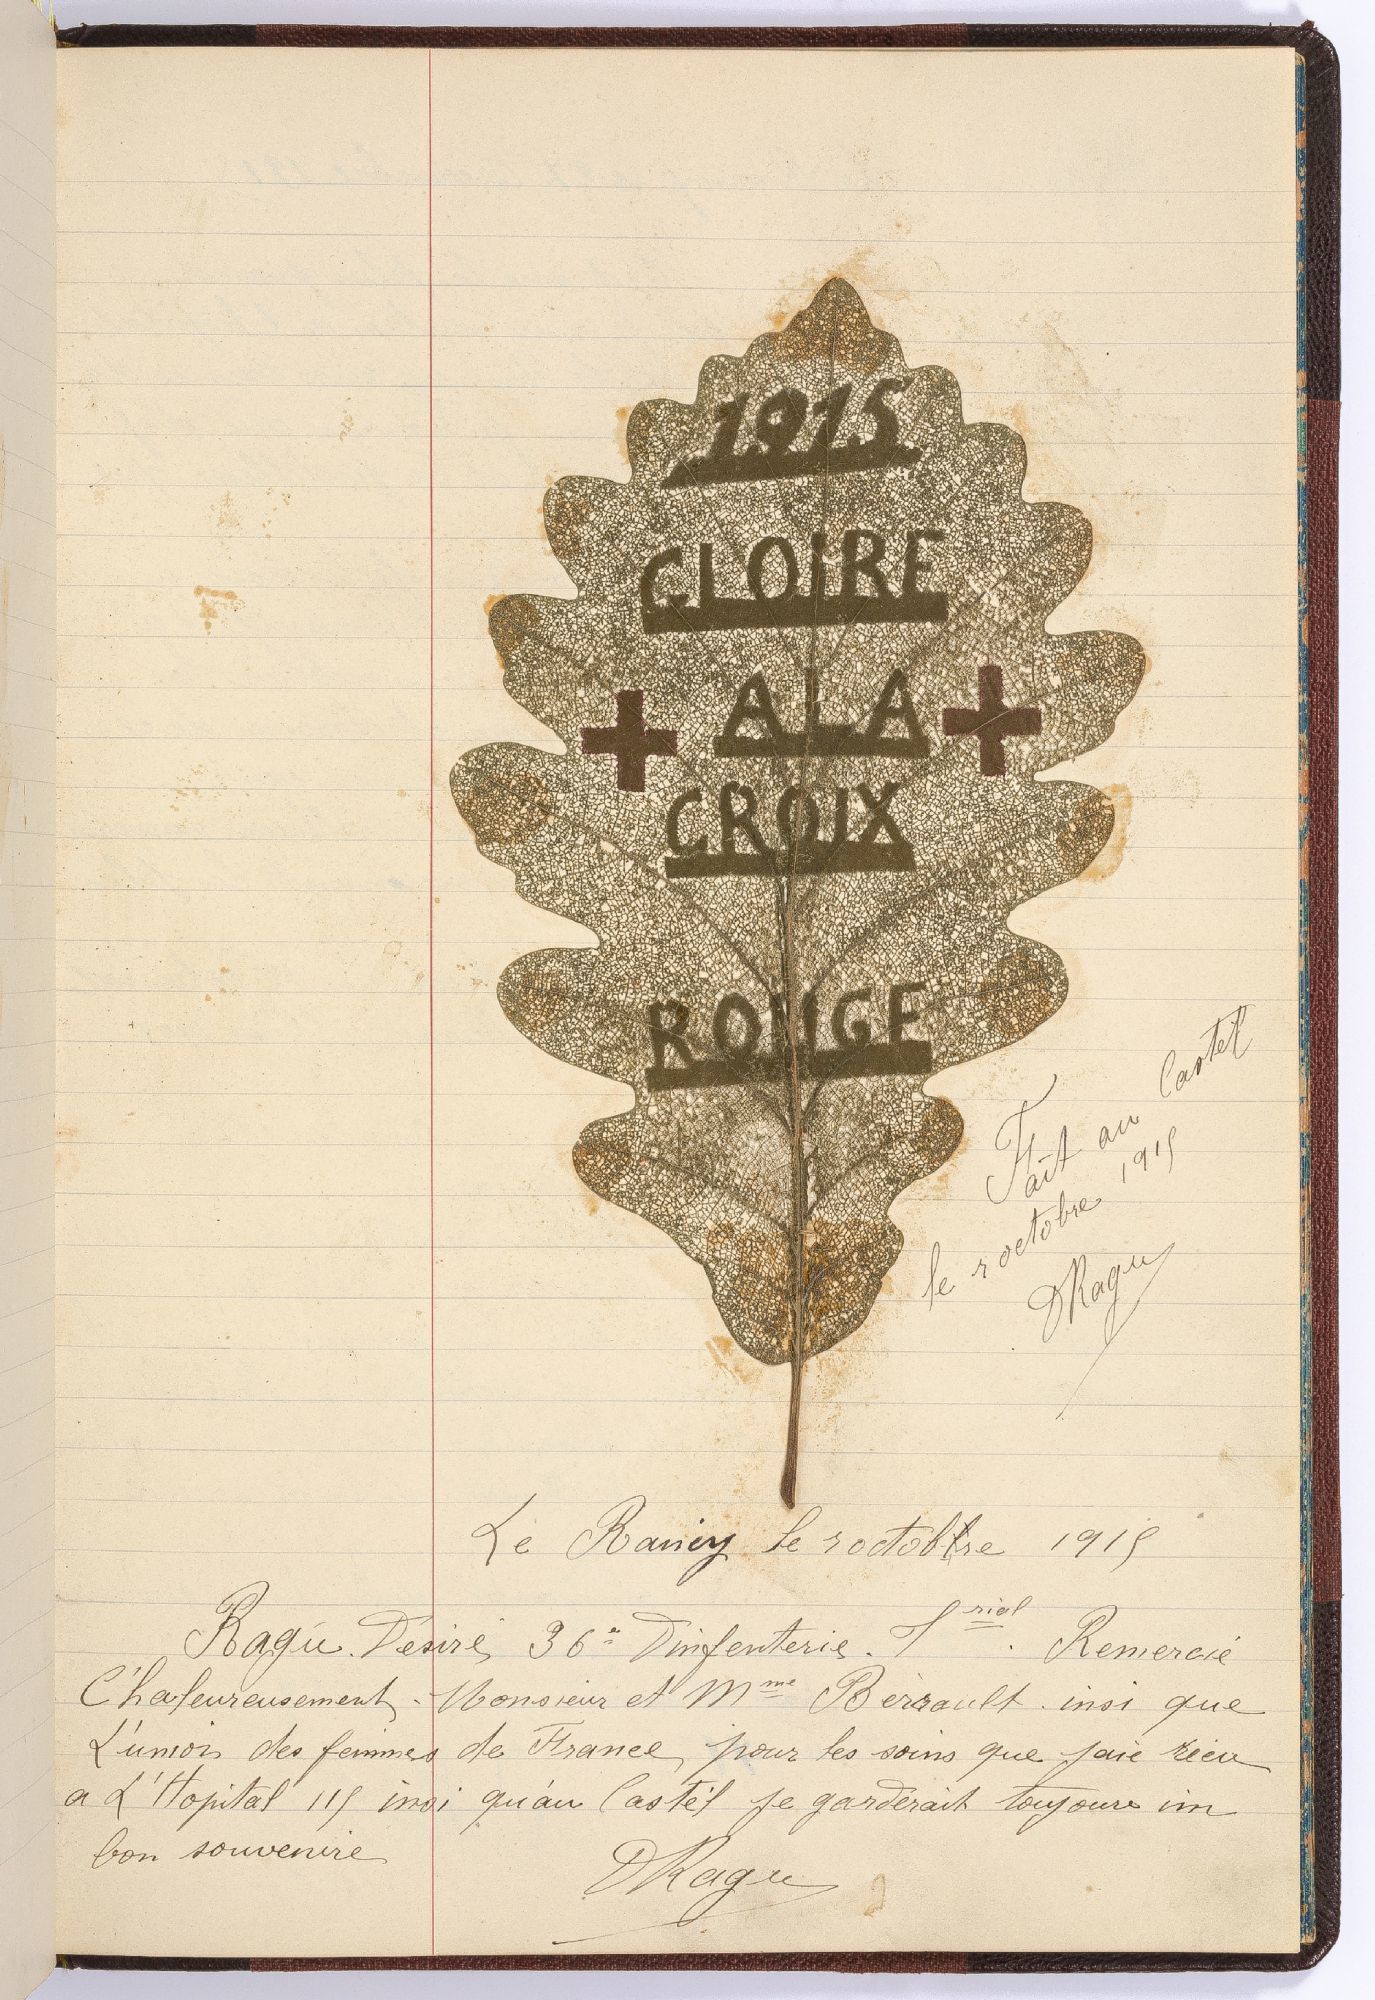 1915
GLOIRE
A LA
CROIX
ROUGE
Fait au Castel
le 2 octobre 1915
DRagu
Le Raincy le 2 octobre 1915
Ragu. Désiré 36e D'infenterie. Remercié
C'haleureusement. Monsieur et Mme Bérault insi que
L'union des femmes de France, pour les soins que jaie recu
a L'Hopital 115 insi qu'au Castél je garderait toujours un
bon souvenire
DRagu